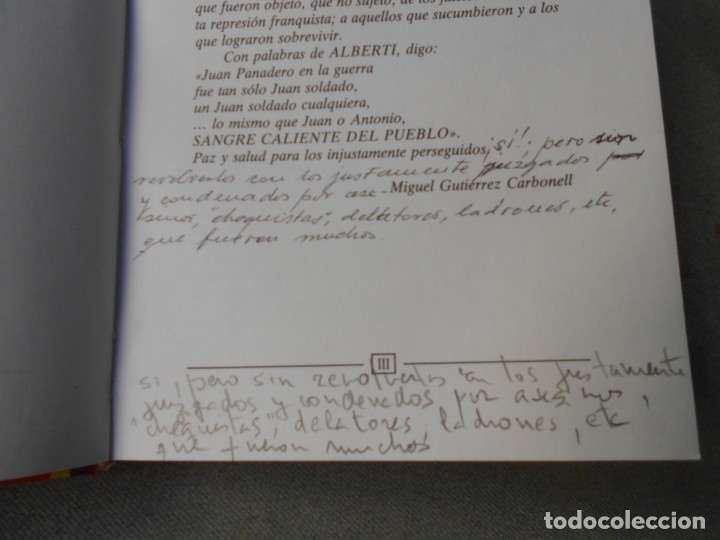 que fueron objeto, que no sujeto, de los
ta represión franquista; a aquellos que sucumbieron y a los
que lograron sobrevivir.
Con palabras de ALBERTI, digo:
«Juan Panadero en la guerra
fue tan sólo Juan soldado,
un Juan soldado cualquiera,
... lo mismo que Juan o Antonio,
SANGRE CALIENTE DEL PUEBLO».
Paz y salud para los injustamente perseguidos, ¡sí!, pero sin
revolverlos con los justamente juzgados
y condenados por ase- Miguel Gutiérrez Carbonell
sinos, "chequistas", delatores, ladrones, etc,
que fueron muchos.
III
si, pero sin revolverlos con los justamente
juzgados y condenados por asesinos,
"chequistas", delatores ladrones, etc
que fueron muchos
todocoleccion
todocoleccion.net